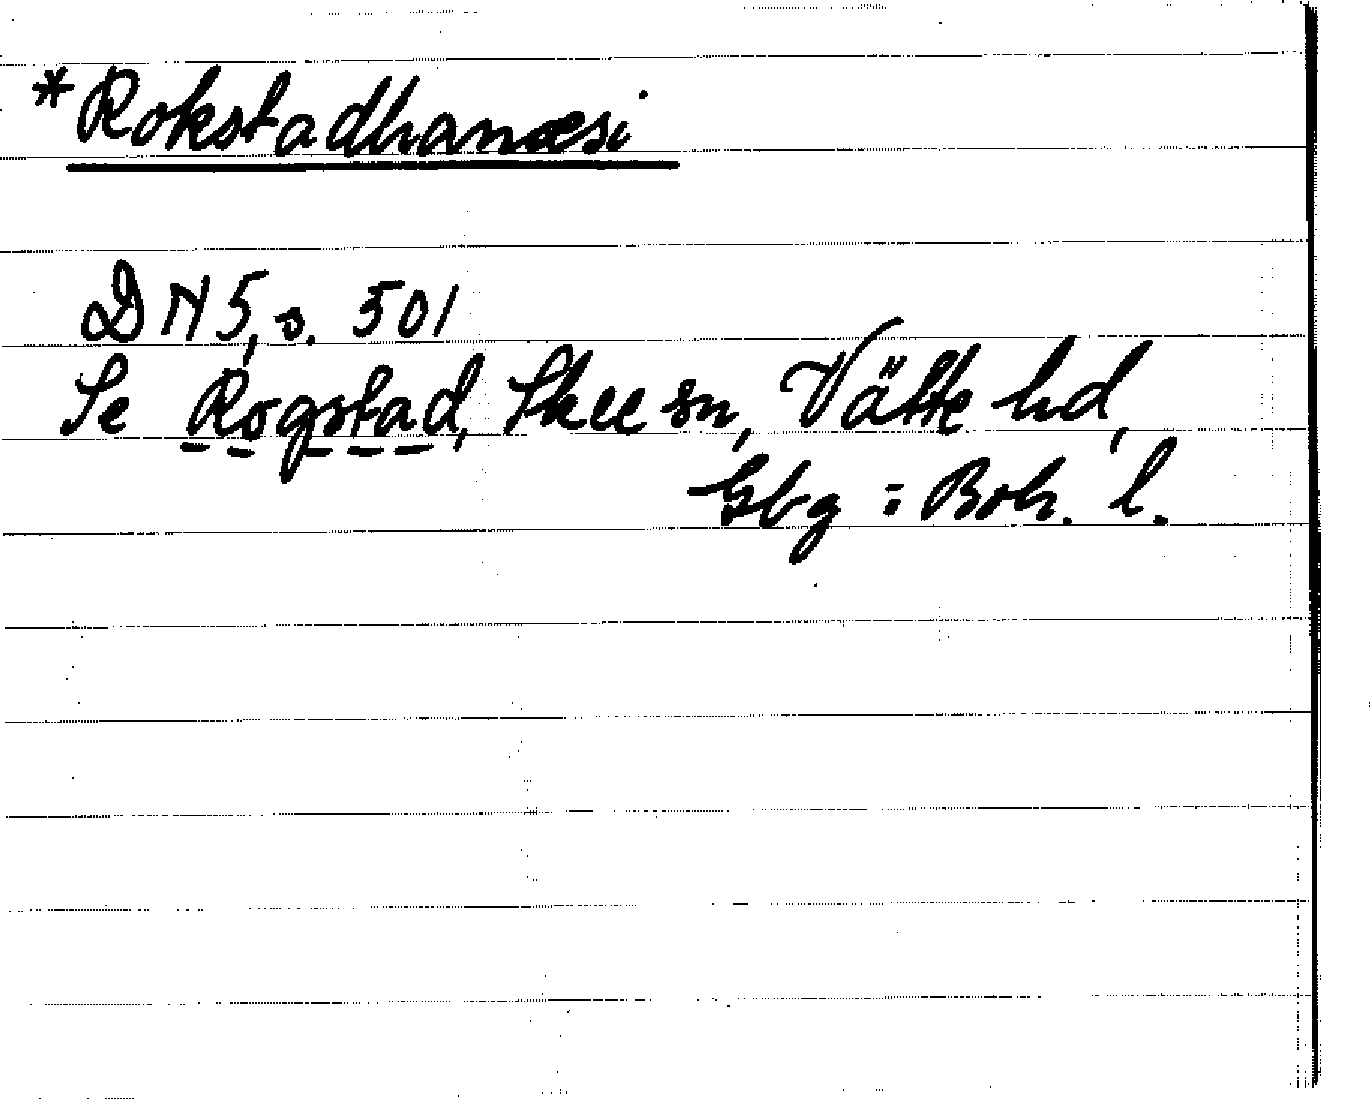 *Rokstadhanæsi
DN 5, s. 501
Se Rogstad, Skee sn, Vätte hd,
Gbg = Boh. l.